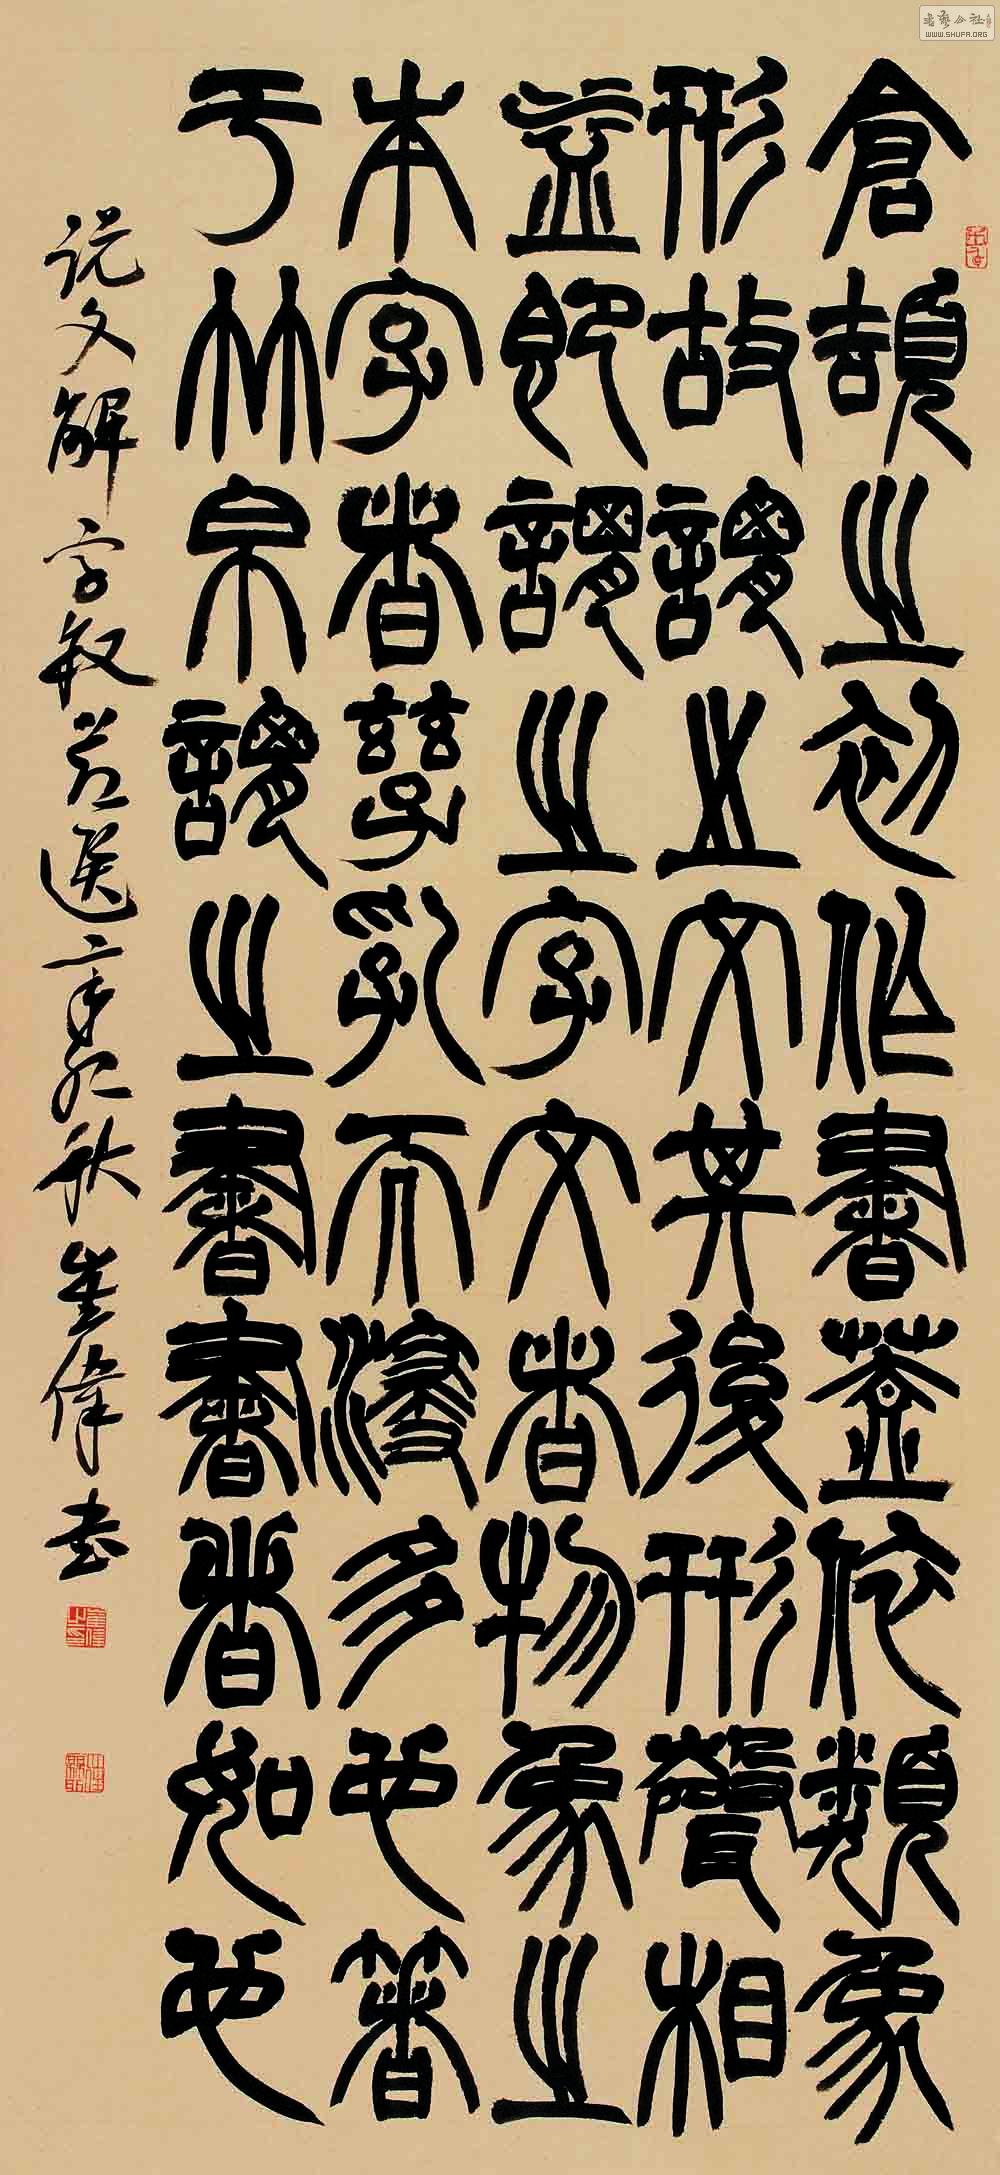 倉頡之初作書蓋依類象
形故謂之文其後形聲相
益即謂之字文者物象之
本字者孳乳而浸多也箸
于竹帛謂之書書者如也
説文解字敘节選辛卯秋崔偉书
书艺公社
WWW.SHUFA.ORG